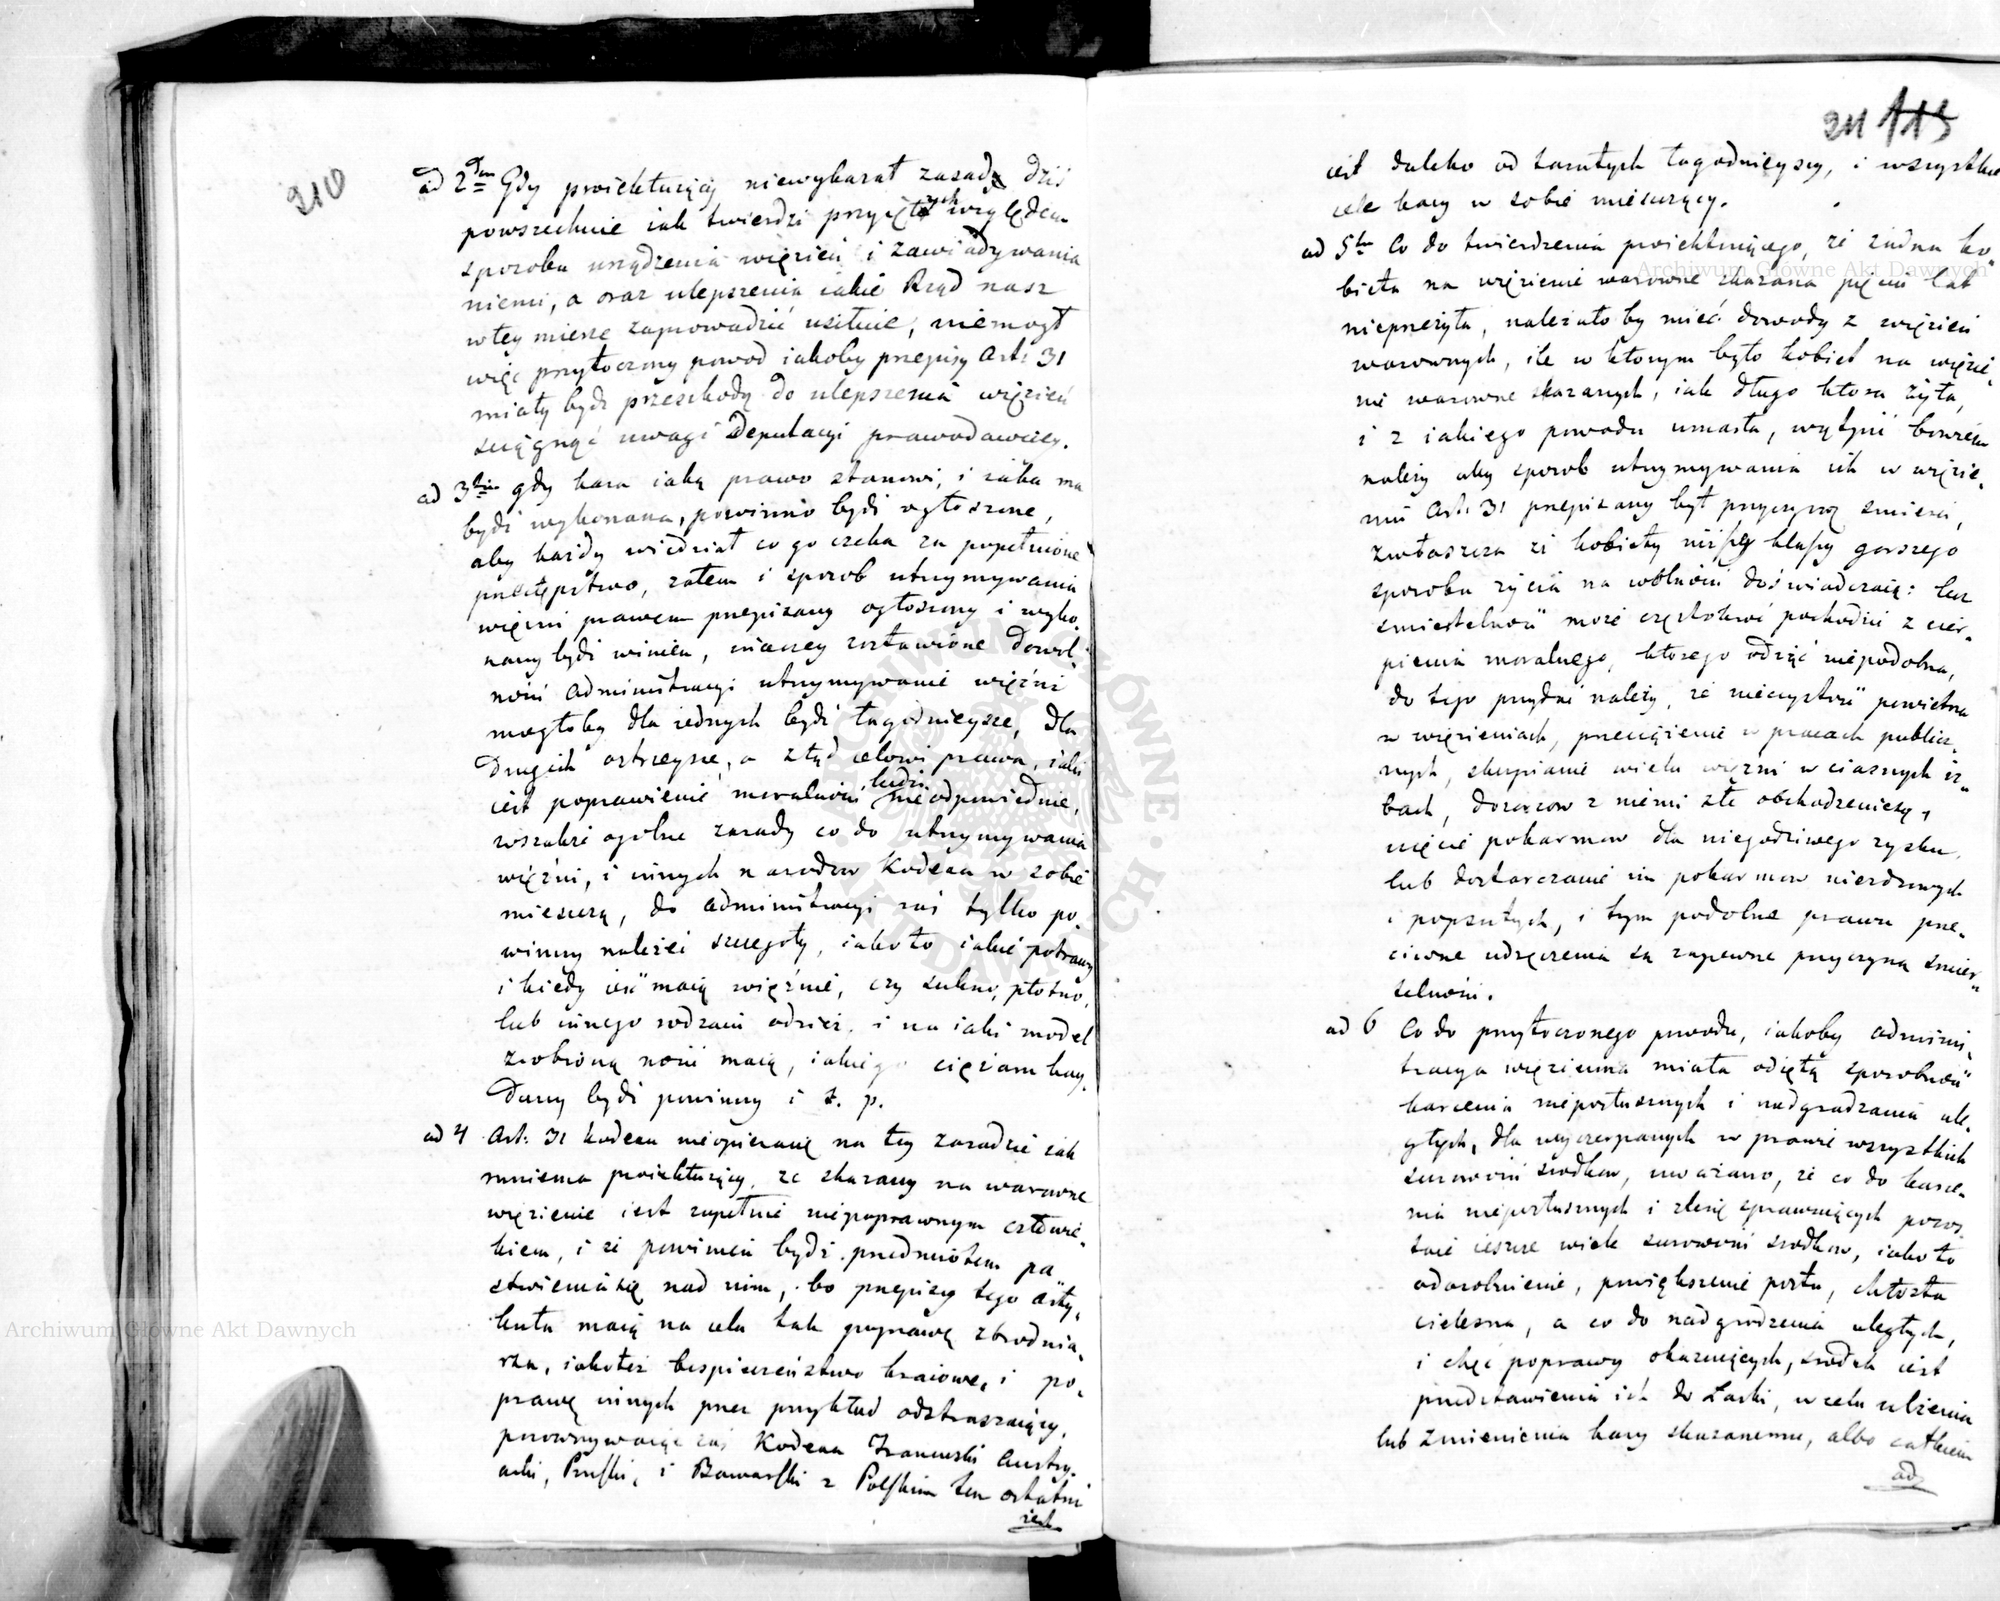 210
ad 2do Gdy proiektuiący niewykazał zasady dziś
powszechnie iak twierdzi przyiętych względem
sposobu urządzenia więzień i zawiadywania
niemi, a oraz ulepszenia iakie Rząd nasz
w tey mierze zaprowadzić usiłuie, niemógł
więc przytoczony powod iakoby przepisy Art: 31
miały bydź przeszkodą do ulepszenia więzień
ściągnąć uwagi Deputacyi prawodawczey.
ad 3tio gdy kara iaką prawo stanowi, i iaka ma
bydź wykonana, powinno bydź ogłoszone,
aby każdy wiedział co go czeka za popełnione
przestępstwo, zatem i sposob utrzymywania
więźni prawem przepisany ogłoszony i wyko-
nany bydź winien, inaczey zostawione dowol-
ności Administracyi utrzymywanie więźni
mogłoby dla iednych bydź łagodnieysze, dla
drugich ostrzeysze, a ztąd celowi prawa, iaki
iest poprawienie moralności ludzi nieodpowiednie,
wszakże ogolne zasady co do utrzymywania
więźni, i innych narodow Kodexa w sobie
mieszczą, do administracyi zaś tylko po-
winny należeć szczegoły, iako to iakie potrawy
i kiedy ieść maią więźnie, czy sukno, płotno,
lub innego rodzaiu odzież, i na iaki model
zrobioną nosić maią, iakiego ciężaru kay-
dany bydź powinny i t. p.
ad 4 Art: 31 kodexu nieopiera się na tey zasadzie iak
mniema proiektuiący, że skazany na warowne
więzienie iest zupełnie niepoprawnym człowie-
kiem, i że powinien bydź przedmiotem pa
stwienia się nad nim, bo przepisy tego arty-
kułu maią na celu tak poprawę zbrodnia-
rza, iakoteż bespieczeństwo kraiowe, i po-
prawę innych przez przykład odstraszaiący,
porownywaiąc zaś Kodexa Francuski Austry-
acki, Pruski, i Bawarski z Polskim ten ostatni
iest
211 115
iest daleko od tamtych łagodnieyszy, i wszystkie
cele kary w sobie mieszczący.
ad 5to Co do twierdzenia proiektuiącego, że żadna ko-
bieta na więzienie warowne skazana pięciu lat
nieprzeżyła, należałoby mieć dowody z więzień
warownych, ile w którym było kobiet na więzie-
nie warowne skazanych, iak długo ktora żyła,
i z iakiego powodu umarła, wątpić bowiem
należy aby sposob utrzymywania ich w więzie-
niu Art: 31 przepisany był przyczyną śmierci,
zwłaszcza że kobiety niższey klassy gorszego
sposobu życia na wolności doświadczaią: lecz
śmiertelność może częstokroć pochodzić z cier-
pienia moralnego, ktorego odjąć niepodobna,
do tego przydać należy, że nieczystość powietrza
w więzieniach, przeciążenie w pracach public-
nych, skupianie wielu więźni w ciasnych iz-
bach, dozorcow z niemi złe obchodzenie się,
ujęcie pokarmow dla niegodziwego zysku,
lub dostarczanie im pokarmow niezdrowych
i popsutych, i tym podobne prawu prze-
ciwne udręczenia są zapewne przyczyną śmier-
telności.
ad 6 Co do przytoczonego powodu, iakoby admini-
stracya więzienna miała odiętą sposobność
karcenia nieposłusznych i nadgradzania ule-
głych, dla wyczerpanych w prawie wszystkich
surowości srodkow, uważano, że co do karce-
nia nieposłusznych i zle się sprawuiących pozos
taie ieszcze wiele surowości srodkow, iako to
odosobnienie, powiększenie postu, chłosta
cielesna, a co do nadgrodzenia uległych,
i chęć poprawy okazuiących, srodek iest
przedstawienia ich do Łaski, w celu ulżenia
lub zmienienia kary skazanemu, albo całkiem
ad
Archiwum Główne Akt Dawnych
Archiwum Główne Akt Dawnych